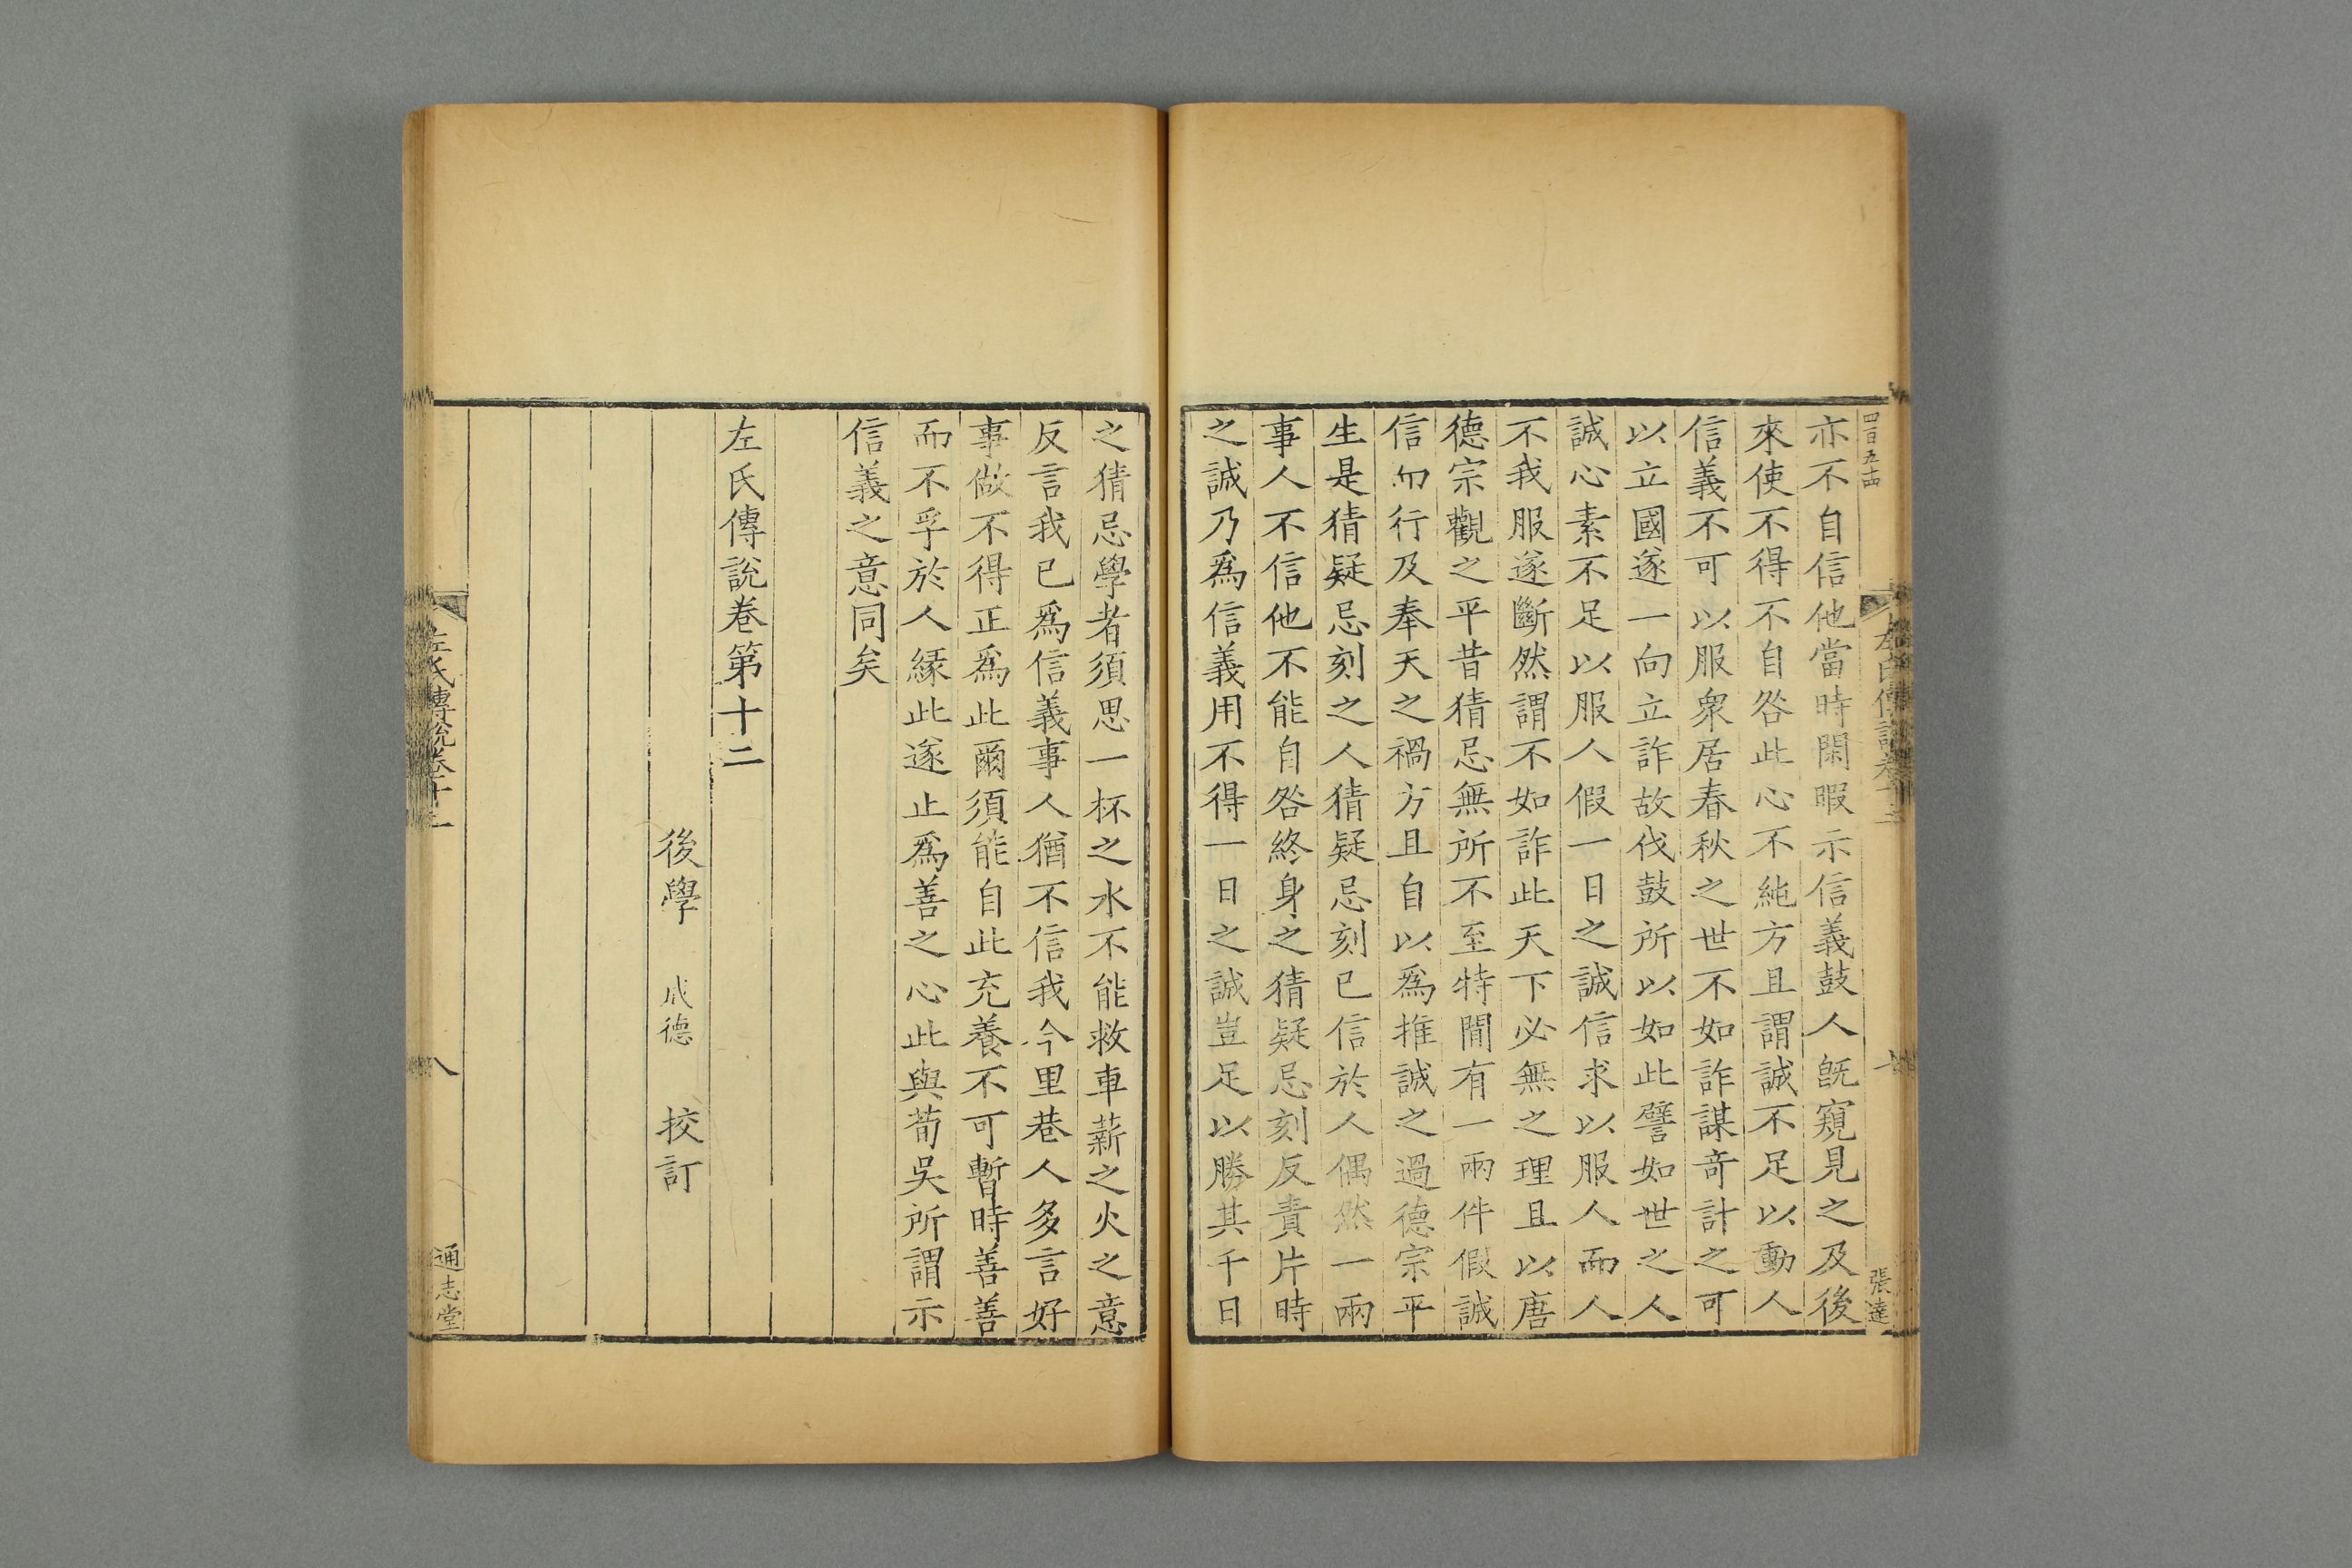 四百五十四
亦不自信他當時閑暇示信義鼓人旣窺見之及後
來使不得不自咎此心不純方且謂誠不足以動人
信義不可以服衆居春秋之世不如詐謀竒計之可
以立國遂一向立詐故伐鼓所以如此譬如世之人
誠心素不足以服人假一日之誠信求以服人而人
不我服遂斷然謂不如詐此天下必無之理且以唐
德宗觀之平昔猜忌無所不至特閒有一兩件假誠
信而行及奉天之禍方且自以爲推誠之過德宗平
生是猜疑忌刻之人猜疑忌刻已信於人偶然一兩
事人不信他不能自咎終身之猜疑忌刻反責片時
之誠乃爲信義用不得一日之誠豈足以勝其千日
張達
之猜忌學者須思一杯之水不能救車薪之火之意
反言我已爲信義事人猶不信我今里巷人多言好
事做不得正爲此爾須能自此充養不可暫時善善
而不孚於人緣此遂止爲善之心此與荀吳所謂示
信義之意同矣
左氏傳說卷第十二
後學 成德 挍訂
左氏傳說卷十二
八
通志堂